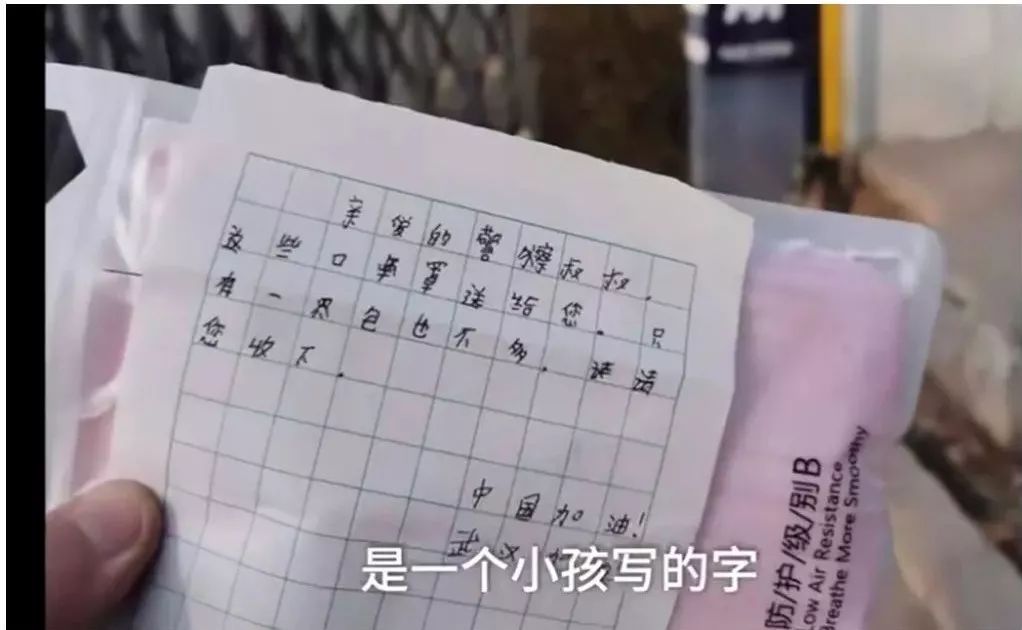 亲爱的警察叔叔.
这些口罩送给您。只
有一包也不多.请
您收下.
中国加油!
武汉
是一个小孩写的字
防/护/级/别B
Low Air Resistance
Breathe More Smoothy